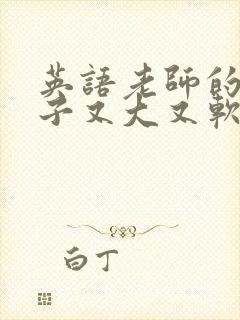 英語老師的
子又大又軟
白丁